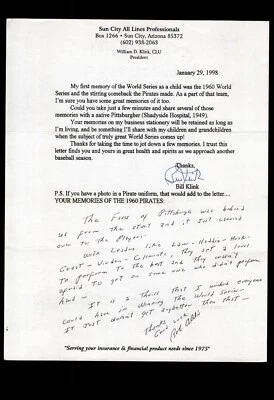 Sun City All Lines Professionals
Box 1266 • Sun City, Arizona 85372
(602) 938-2063
William D. Klink, CLU
President
January 29, 1998
My first memory of the World Series as a child was the 1960 World
Series and the stirring comeback the Pirates made. As a part of that team,
I'm sure you have some great memories of it too.
Could you take just a few minutes and share several of those
memories with a native Pittsburgher (Shadyside Hospital, 1949).
Your memories on my business stationery will be retained as long as
I'm living, and be something I will share with my children and grandchildren
when the subject of truly great World Series comes up!
Thanks for taking the time to jot down a few memories. I trust this
letter finds you and yours in great health and spirits as we approach another
baseball season.
Thanks,
Bill Klink
P.S. If you have a photo in a Pirate uniform, that would add to the letter....
YOUR MEMORIES OF THE 1960 PIRATES:
The Fans of Pittsburgh was behind
us from the start and it just
over to the Players.
With Leaders like Law - Haddix - Hoak -
Groat - Virdon - Clemente, they set a level
to perform to the best and they wasn't
afraid to get on some one who didn't perform
hard - It is a thrill that I wished everyone
could have in Winning the World Series -
It just doesn't get any better than that -
Thanks with
"Serving your insurance & financial product needs since 1975"